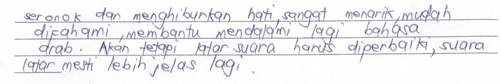 seronok dan menghiburkan hati, sangat menarik, mudah
difahami, membantu mendalami lagi bahasa
drab. Akan tetapi latar suara harus diperbaiki, suara
latar mesti lebih jelas lagi.